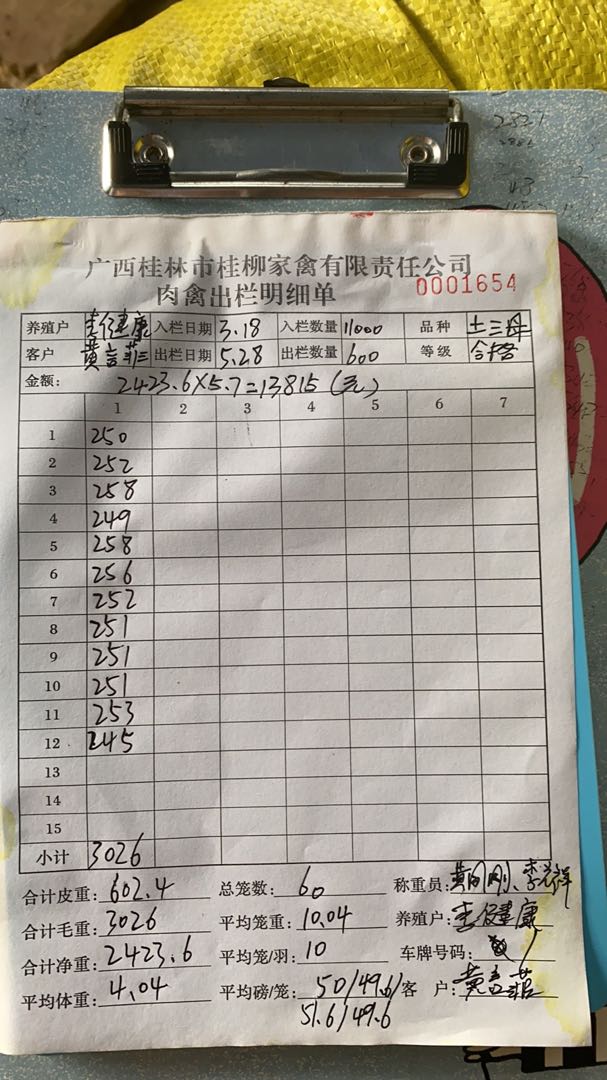 广西桂林市桂柳家禽有限责任公司
肉禽出栏明细单 0001654
养殖户 李健康 入栏日期 3.18 入栏数量 11000 品种 土三
客户 黄言菲 出栏日期 5.28 出栏数量 600 等级 合格
金额: 2423.6×5.7=13815(元)
1 2 3 4 5 6 7
1 250
2 252
3 258
4 249
5 258
6 256
7 252
8 251
9 251
10 251
11 253
12 245
13
14
15
小计 3026
合计皮重: 602.4 总笼数: 60 称重员: 黄刚刚、李
合计毛重: 3026 平均笼重: 10.04 养殖户: 李健康
合计净重: 2423.6 平均笼/羽: 10 车牌号码:
平均体重: 4.04 平均磅/笼: 50/49.6/ 客 户: 黄言菲
51.6/49.6